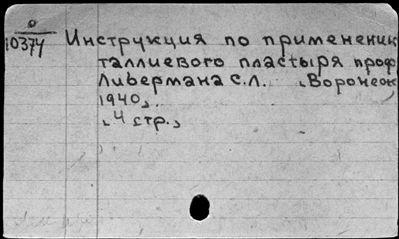 0
10374
Инструкция по применению
таллиевого пластыря проф
Либермана С.Л. Воронеж
1940,
4 стр.,